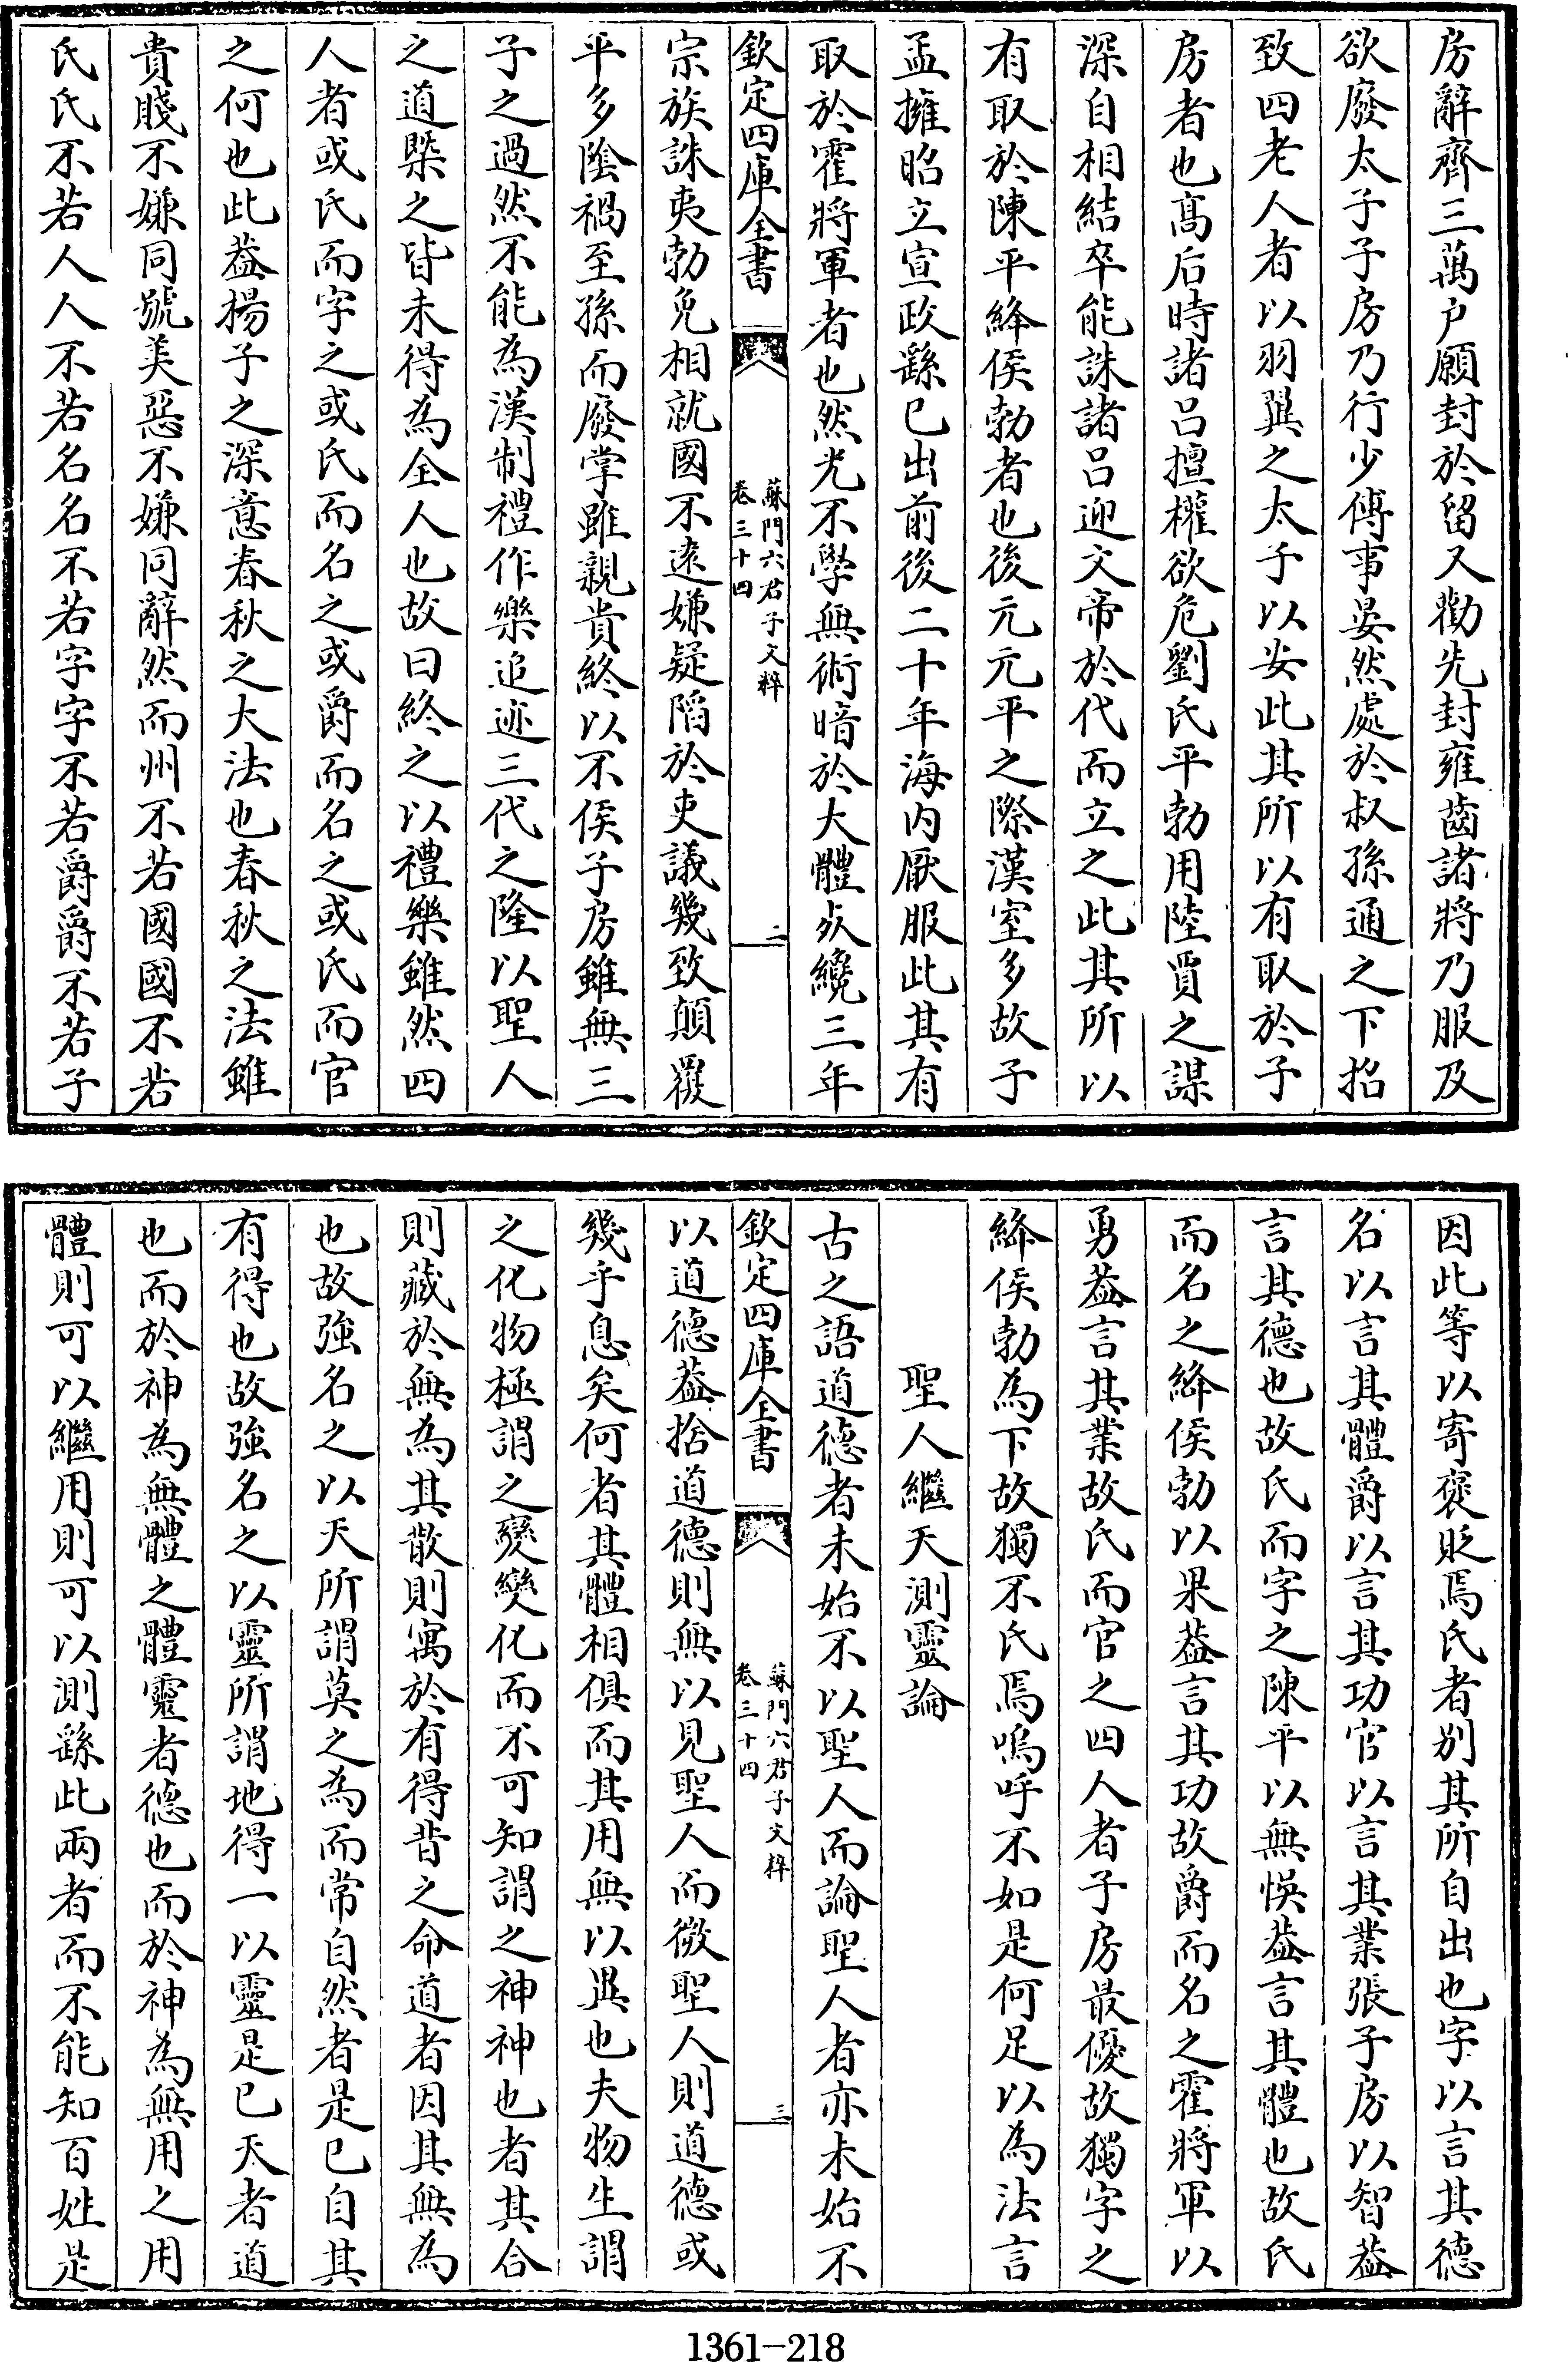 房辭齊三萬戶願封於留又勸先封雍齒諸將乃服及
欲廢太子子房乃行少傅事晏然處於叔孫通之下招
致四老人者以羽翼之太子以安此其所以有取於子
房者也髙后時諸呂擅權欲危劉氏平勃用陸賈之謀
深自相結卒能誅諸呂迎文帝於代而立之此其所以
有取於陳平絳侯勃者也後元元平之際漢室多故子
孟擁昭立宣政繇已出前後二十年海内厭服此其有
取於霍將軍者也然光不學無術暗於大體死纔三年
欽定四庫全書
蘇門六君子文粹
卷三十四
二
宗族誅夷勃免相就國不逺嫌疑陷於吏議幾致顛覆
平多隂禍至孫而廢掌雖親貴終以不侯子房雖無三
子之過然不能為漢制禮作樂追迹三代之隆以聖人
之道槩之皆未得為全人也故曰終之以禮樂雖然四
人者或氏而字之或氏而名之或爵而名之或氏而官
之何也此葢揚子之深意春秋之大法也春秋之法雖
貴賤不嫌同號美惡不嫌同辭然而州不若國國不若
氏氏不若人人不若名名不若字字不若爵爵不若子
因此等以寄褒貶焉氏者别其所自出也字以言其德
名以言其體爵以言其功官以言其業張子房以智葢
言其德也故氏而字之陳平以無悞葢言其體也故氏
而名之絳侯勃以果葢言其功故爵而名之霍將軍以
勇葢言其業故氏而官之四人者子房最優故獨字之
絳侯勃為下故獨不氏焉嗚呼不如是何足以為法言
聖人繼天測靈論
古之語道德者未始不以聖人而論聖人者亦未始不
欽定四庫全書
蘇門六君子文粹
卷三十四
三
以道德葢捨道德則無以見聖人而微聖人則道德或
幾乎息矣何者其體相俱而其用無以異也夫物生謂
之化物極謂之變變化而不可知謂之神神也者其合
則藏於無為其散則寓於有得昔之命道者因其無為
也故強名之以天所謂莫之為而常自然者是已自其
有得也故強名之以靈所謂地得一以靈是已天者道
也而於神為無體之體靈者德也而於神為無用之用
體則可以繼用則可以測繇此兩者而不能知百姓是
1361-218